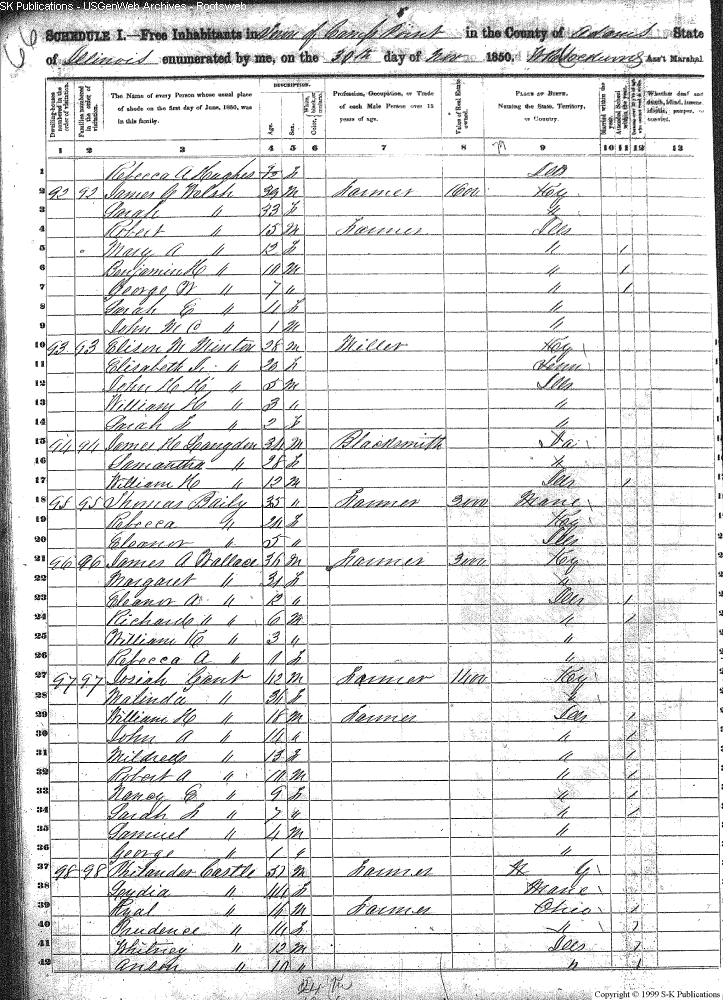 SK Publications - USGenWeb Archives - Rootsweb
SCHEDULE I.—Free Inhabitants in Town of Camp Point in the County of Adams State
of Illinois enumerated by me, on the 30th day of Nov 1850. Ass't Marshal
Dwelling-houses numbered in the order of visitation. Families numbered in the order of visitation. The Name of every Person whose usual place of abode on the first day of June, 1850, was in this family. DESCRIPTION. Age. Sex. Color, White, black, or mulatto. Profession, Occupation, or Trade of each Male Person over 15 years of age. Value of Real Estate owned. PLACE OF BIRTH. Naming the State, Territory, or Country. Married within the year. Attended School within the year. Whether deaf and dumb, blind, insane, idiotic, pauper, or convict.
1 2 3 4 5 6 7 8 9 10 11 12 13
1 Rebecca A Hughes F Ills
2 92 92 James G Welsh 39 M Farmer 1600 Key
3 Sarah " 33 F "
4 Robert " 15 M Farmer Ills
5 Mary A " 12 F " /
6 Benjamin H " 10 M " /
7 George W " 7 " " /
8 Sarah E " 4 F "
9 John M C " 1 M "
10 93 93 Elison M Hinton 28 M Miller Key
11 Elisabeth " 20 F Tenn
12 John H H " 5 M Ills
13 William H " 3 " "
14 Sarah F " 2 F "
15 94 94 James H Langdon 34 M Blacksmith
16 Samantha " 28 F "
17 William H " 12 M Ills /
18 95 95 Thomas Baily 35 " Farmer 3000 Mane
19 Rebecca " 20 F Key
20 Eleanor " 5 " Ills
21 96 96 James A Wallace 36 M Farmer 3000 Key
22 Margaret " 31 F "
23 Eleanor A " 12 " Ills /
24 Richard " " 6 M " /
25 William H " 3 " "
26 Rebecca A " 1 F "
27 97 97 Josiah Gant 42 M Farmer 1400 Key
28 Malinda " 36 F "
29 William H " 18 M Farmer Ills /
30 John A " 14 " " /
31 Mildred " 13 F " /
32 Robert A " 10 M " /
33 Nancy E " 9 F " /
34 Sarah F " 7 " " /
35 Samuel " 4 M "
36 George " 1 " "
37 98 98 Philander Castle 51 M Farmer N Y
38 Lydia " 44 F Mane
39 Ryal " 16 M Farmer Ohio /
40 Prudence " 14 F " /
41 Whitney " 12 M Ills /
42 Anson " 10 " " /
Copyright © 1999 S-K Publications